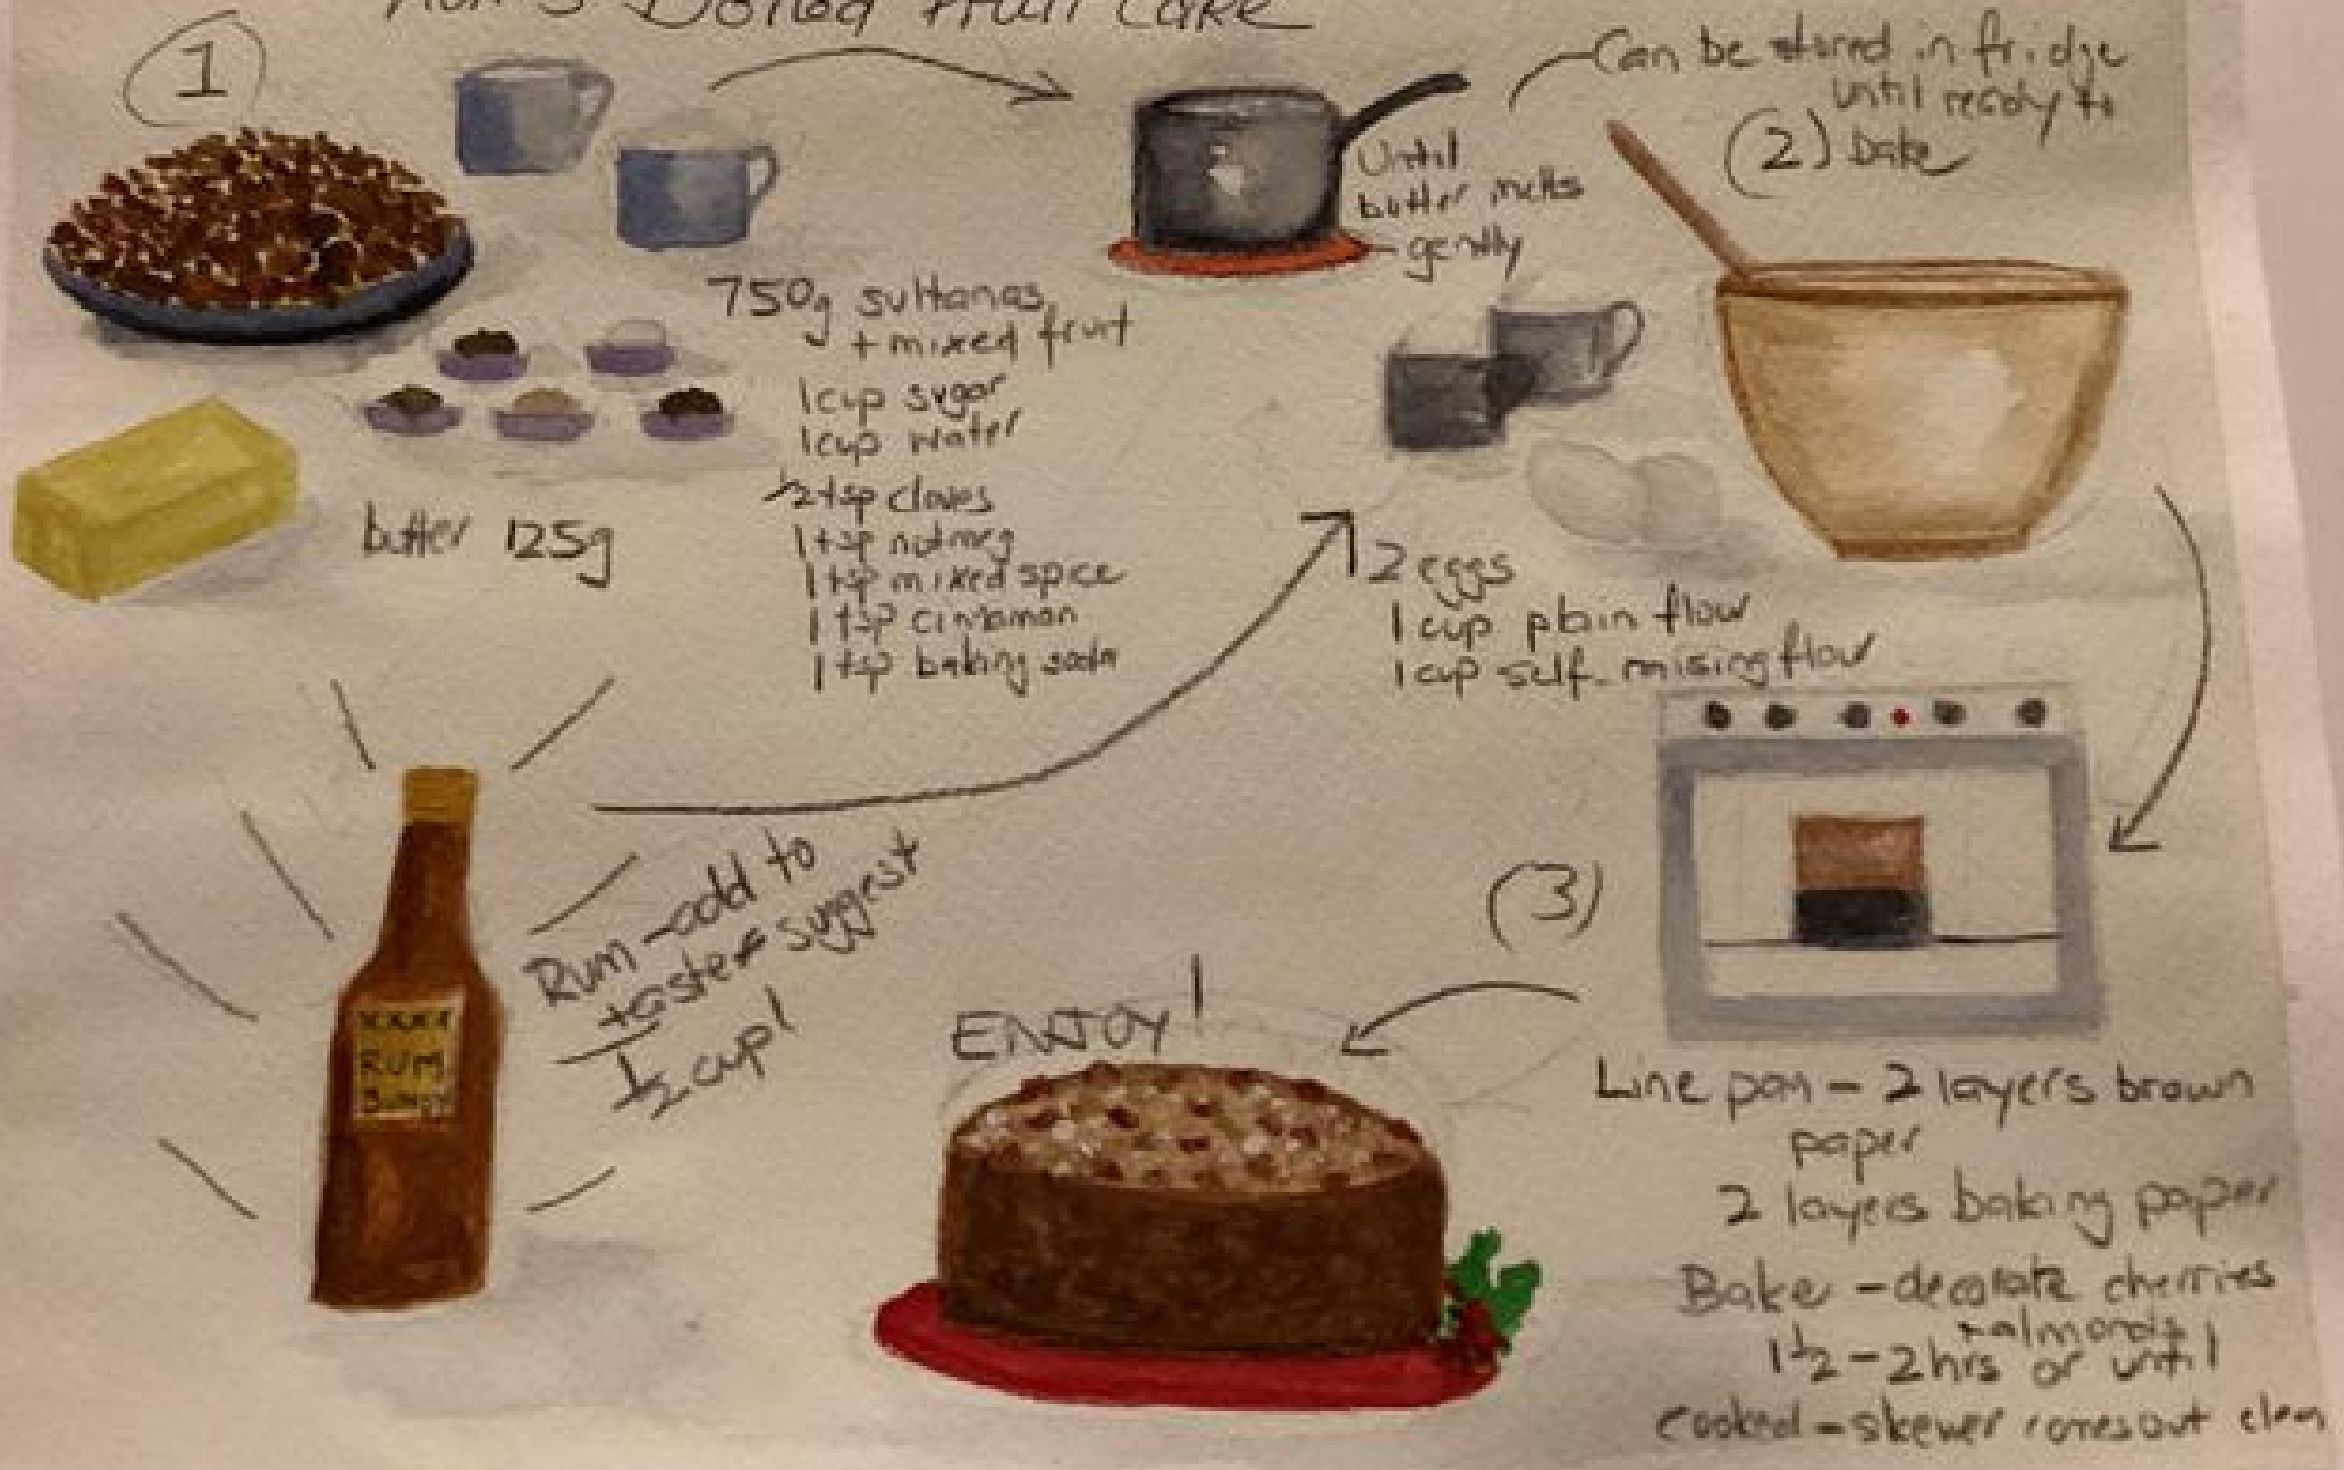 Boiled Fruit Cake
1
Can be stored in fridge
until ready to
bake
(2)
Until
butter melts
- gently
750g sultanas
+ mixed fruit
1 cup sugar
1 cup water
1/2 tsp cloves
1 tsp nutmeg
1 tsp mixed spice
1 tsp cinnamon
1 tsp baking soda
butter 125g
2 eggs
1 cup plain flour
1 cup self raising flour
Rum - add to
taste suggest
1/2 cup!
XXXX
RUM
(3)
ENJOY!
Line pan - 2 layers brown
paper
2 layers baking paper
Bake - decorate cherries
+ almonds
1 1/2 - 2 hrs or until
cooked - skewer comes out clean